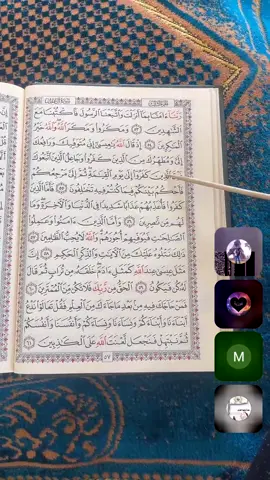 رَبَّنَآ ءَامَنَّا بِمَآ أَنزَلْتَ وَٱتَّبَعْنَا ٱلرَّسُولَ فَٱكْتُبْنَا مَعَ
ٱلشَّٰهِدِينَ ٥٣ وَمَكَرُوا۟ وَمَكَرَ ٱللَّهُ وَٱللَّهُ خَيْرُ
ٱلْمَٰكِرِينَ ٥٤ إِذْ قَالَ ٱللَّهُ يَٰعِيسَىٰٓ إِنِّى مُتَوَفِّيكَ وَرَافِعُكَ
إِلَىَّ وَمُطَهِّرُكَ مِنَ ٱلَّذِينَ كَفَرُوا۟ وَجَاعِلُ ٱلَّذِينَ ٱتَّبَعُوكَ
فَوْقَ ٱلَّذِينَ كَفَرُوٓا۟ إِلَىٰ يَوْمِ ٱلْقِيَٰمَةِ ثُمَّ إِلَىَّ مَرْجِعُكُمْ
فَأَحْكُمُ بَيْنَكُمْ فِيمَا كُنتُمْ فِيهِ تَخْتَلِفُونَ ٥٥ فَأَمَّا ٱلَّذِينَ
كَفَرُوا۟ فَأُعَذِّبُهُمْ عَذَابًا شَدِيدًا فِى ٱلدُّنْيَا وَٱلْءَاخِرَةِ وَمَا
لَهُم مِّن نَّٰصِرِينَ ٥٦ وَأَمَّا ٱلَّذِينَ ءَامَنُوا۟ وَعَمِلُوا۟
ٱلصَّٰلِحَٰتِ فَيُوَفِّيهِمْ أُجُورَهُمْ وَٱللَّهُ لَا يُحِبُّ ٱلظَّٰلِمِينَ ٥٧
ذَٰلِكَ نَتْلُوهُ عَلَيْكَ مِنَ ٱلْءَايَٰتِ وَٱلذِّكْرِ ٱلْحَكِيمِ ٥٨ إِنَّ
مَثَلَ عِيسَىٰ عِندَ ٱللَّهِ كَمَثَلِ ءَادَمَ خَلَقَهُۥ مِن تُرَابٍ ثُمَّ قَالَ
لَهُۥ كُن فَيَكُونُ ٥٩ ٱلْحَقُّ مِن رَّبِّكَ فَلَا تَكُن مِّنَ ٱلْمُمْتَرِينَ ٦٠
فَمَنْ حَآجَّكَ فِيهِ مِنۢ بَعْدِ مَا جَآءَكَ مِنَ ٱلْعِلْمِ فَقُلْ تَعَالَوْا۟ نَدْعُ
أَبْنَآءَنَا وَأَبْنَآءَكُمْ وَنِسَآءَنَا وَنِسَآءَكُمْ وَأَنفُسَنَا وَأَنفُسَكُمْ
ثُمَّ نَبْتَهِلْ فَنَجْعَل لَّعْنَتَ ٱللَّهِ عَلَى ٱلْكَٰذِبِينَ ٦١
٥٧
M